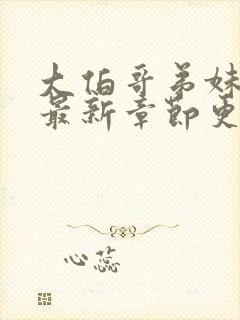 大伯哥弟妹
最新章节更
心蕊